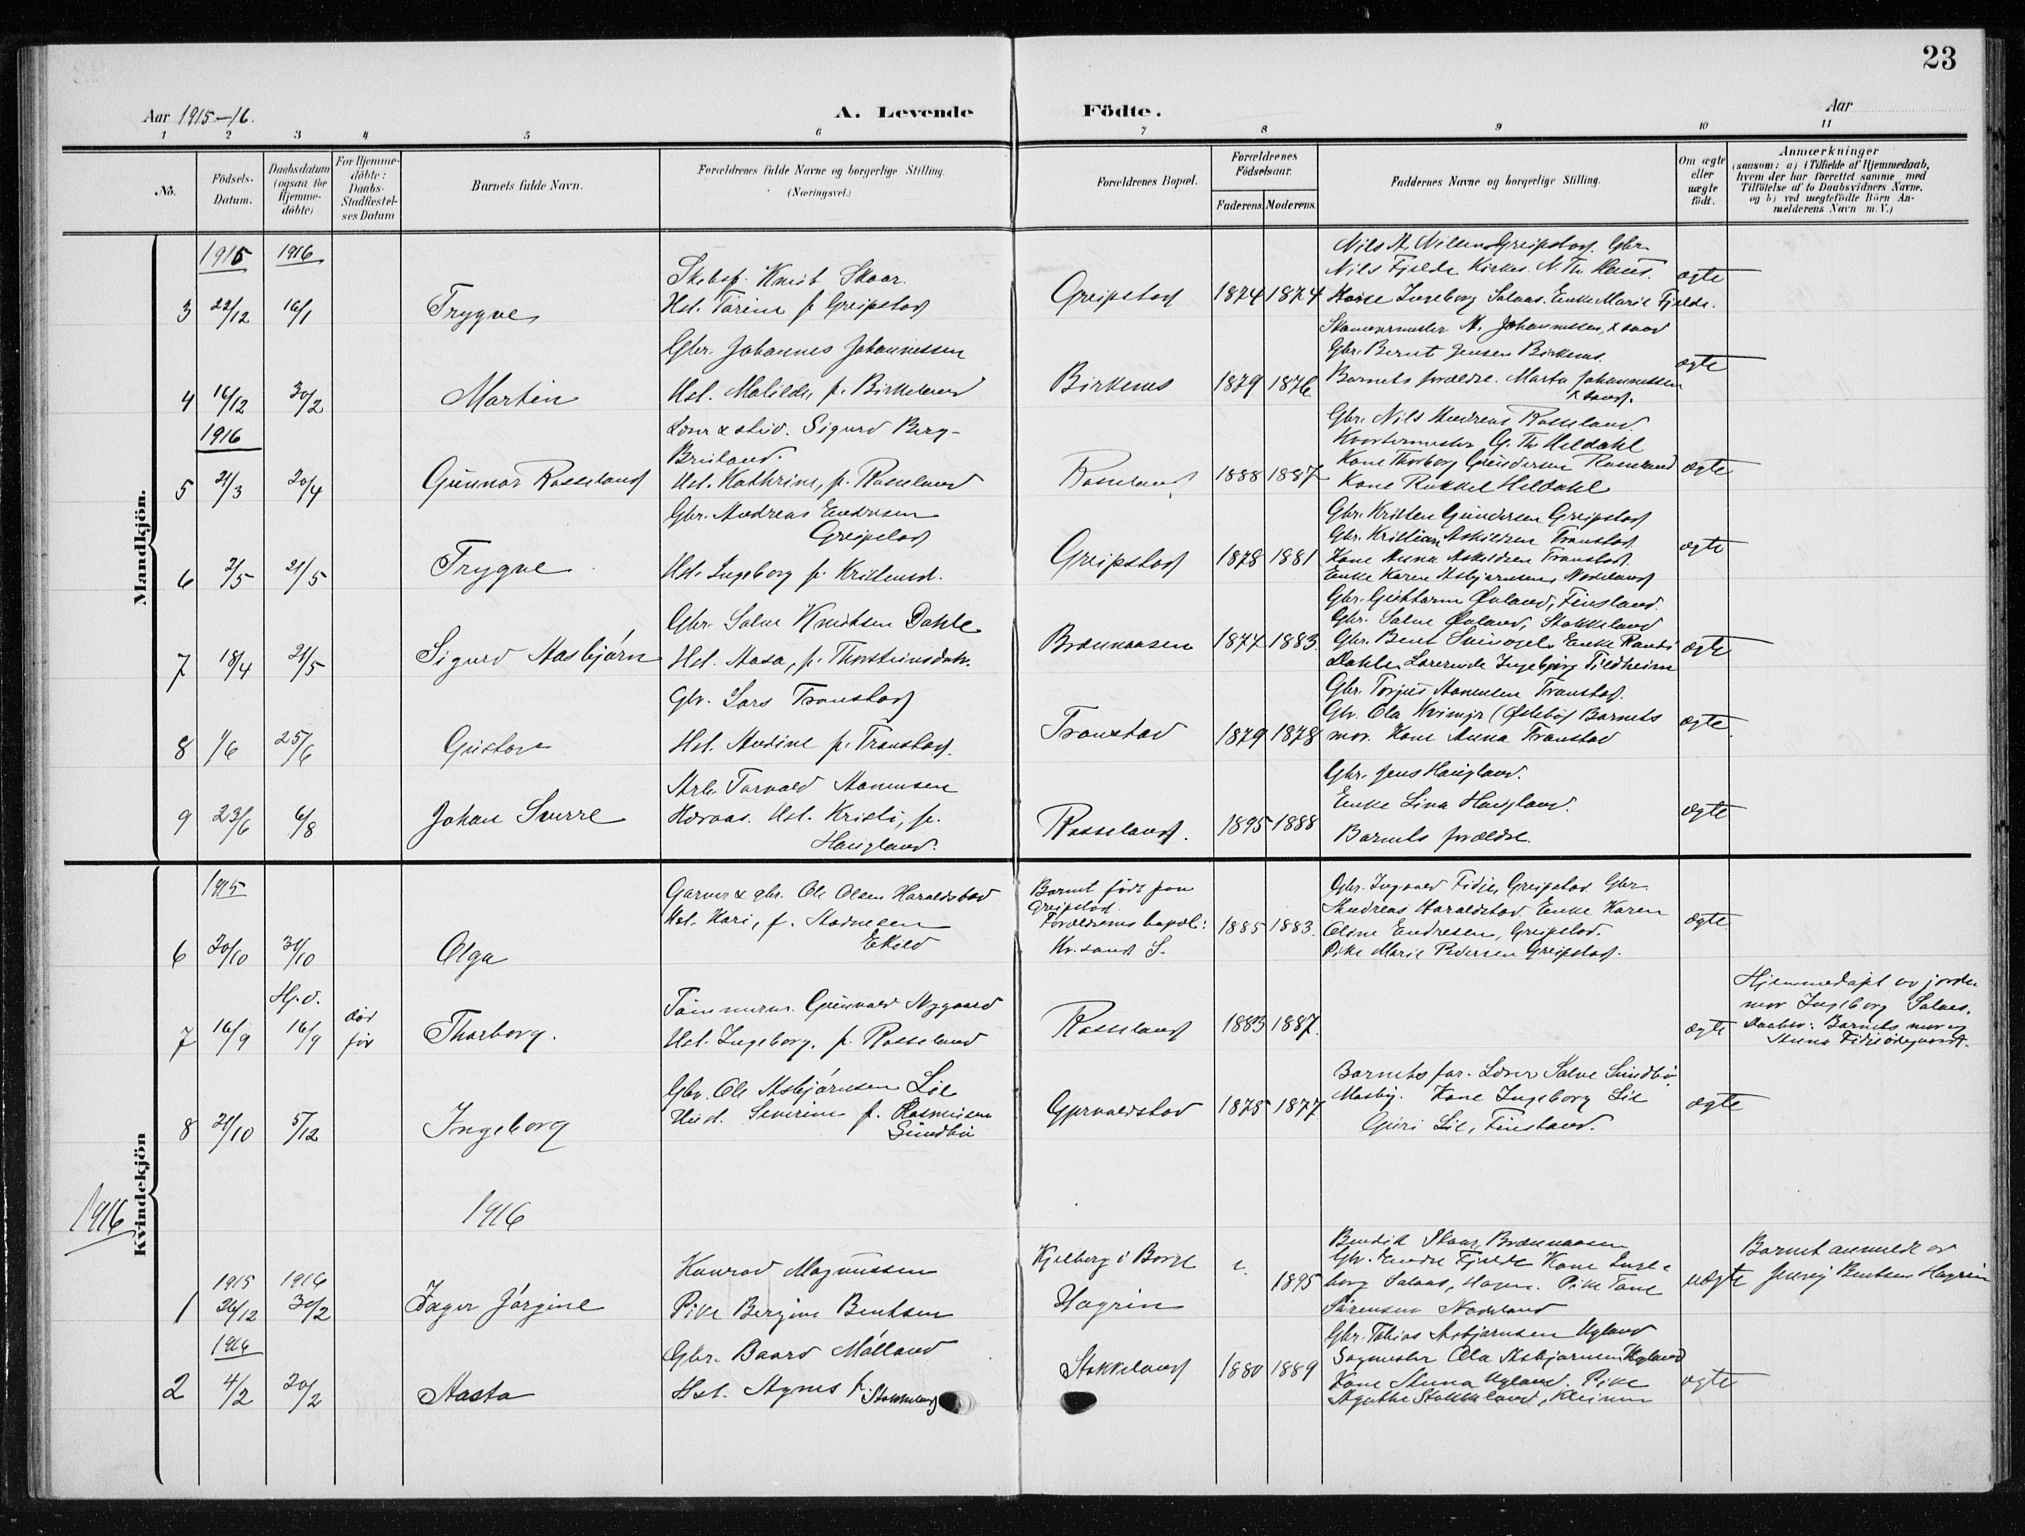 23
Aar 1915-16.
A. Levende Födte.
Aar
1 2 3 4 5 6 7 8 9 10 11
No.
Födsels-Datum.
Daabsdatum (ogsaa for Hjemme-döbte)
For Hjemme-döbte: Daabs-Stadfæstel-ses Datum
Barnets fulde Navn.
Forældrenes fulde Navne og borgerlige Stilling. (Næringsvei.)
Forældrenes Bopæl.
Forældrenes Födselsaar.
Faderens. Moderens.
Faddernes Navne og borgerlige Stilling.
Om ægte eller uægte födt.
Anmærkninger
(saasom: a) i Tilfælde af Hjemmedaab, hvem der har forrettet samme, med Tilföielse af to Daabsvidners Navne, og b) ved uægtefödte Börn Anmelderens Navn m. V.)
Mandkjön.
1915 1916
3 22/12 16/1 Trygve
Knut Skaar.
Hst. Torine f. Greipstad
Greipstad 1874 1874
Nils A. Nilsen Greipstad. Gbr.
Nils Fjelde Kirkes. N. Th.
Ingeborg Salaas. Enke Marie Fjelde.
ægte
4 16/12 30/2 Martin
Gbr. Johannes Johannessen
Hst. Matilde, f. Birkeland
Birkenes 1879 1876
Johannessen,
Gbr. Bernt Jensen Birkenes.
Barnets forældre. Marta Johannessen
ægte
1916
5 21/3 20/4 Gunnar Rosseland
Sigurd Berg-
Hst. Kathrine, f. Rosseland
Rosseland 1888 1887
Gbr. Nils Andreas Rosseland.
G. Th. Heldahl
Kone Thorborg Gundersen Rosseland
Kone Rakkel Heldahl
ægte
6 2/5 21/5 Trygve
Gbr. Andreas Endresen
Greipstad
Hst. Ingeborg f. Kristensd.
Greipstad 1878 1881
Gbr. Kristen Gundersen Greipstad
Gbr. Kristian Askildsen Tronstad.
Kone Anna Askildsen Tronstad.
Enke Karen Asbjørnsen, Nodeland
ægte
7 18/4 21/5 Sigurd Aasbjørn
Gbr. Salve Knudsen Dahle
Hst. Aasa, f. Thorsteinsdatr.
Brønnaasen 1874 1883.
Gbr. Guttorm Øvland, Finsland.
Gbr. Salve Øvland, Stokkeland
Gbr. Bent Enke Randi
Dahle, Lærerinde Ingebjørg Tjeldheim
ægte
8 1/6 25/6 Gustav
Gbr. Lars Tronstad
Hst. Andine f. Tronstad.
Tronstad 1879 1878
Gbr. Torjus Aanensen Tronstad.
Gbr. Ola Barnets
mor. Kone Anna Tronstad
ægte.
9 23/6 6/8 Johan Sverre
Arb. Torvald Aanensen
Hst. Kristi, f.
Haugland.
Rosseland. 1895 1888
Gbr. Jens Haugland.
Enke Lina Haugland.
Barnets forældre.
ægte
Kvindekjön
1915
6 20/10 31/10 Olga
Garver & gbr. Ole Olsen Haraldstad
Hst. Kari, f. Aadnesen
Eikild
Barnet født paa
Greipstad.
Forældrenes bopæl:
Kr.sand S.
1885 1883.
Gbr. Ingvald Fidje, Greipstad. Gbr.
Andreas Haraldstad. Enke Karen
Oline Endresen, Greipstad.
Pike Marie Pedersen Greipstad.
ægte
7 16/9 Hj.d. 16/9 død før Thorborg.
Tømmerm. Gunvald Nygaard
Hst. Ingeborg, f. Rosseland
Rosseland 1883 1887.
ægte
Hjemmedøpt av jorde-
mor Ingeborg Salaas.
Daabsv: Barnets mor og
Anna Fidje
8 21/10 5/12 Ingeborg
Gbr. Ole Asbjørnsen Lie
Severine f. Rasmussen
Sundbø
Gyrvoldstad 1875 1877
Barnets far. Lærer Salve Sundbø
Mosby. Kone Ingeborg Lie
Guri Lie, Finsland.
ægte
1916
1916
1 1915 26/12 1916 30/2 Inger Jørgine
Konrad Magnussen
Pike Bergine Bentsen
Kjelberg i Borge
Hagrin
1895
Bendik Skaar, Brønnaasen
Gbr. Endre Fjelde Kone Inge-
borg Salaas, Pike Tone
Sørensen Nodeland
uægte
Barnet anmeldt av
Bentsen Hagrin
1916
2 4/2 20/2 Aasta
Gbr. Baard Mølland
Hst. Agnes f. Stokkeland
Stokkeland 1880 1889
Gbr. Tobias Asbjørnsen Ugland
Sogneskr. Ola Asbjørnsen Ugland
Kone Anna Ugland. Pike
Agathe Stokkeland, Kleiven
ægte